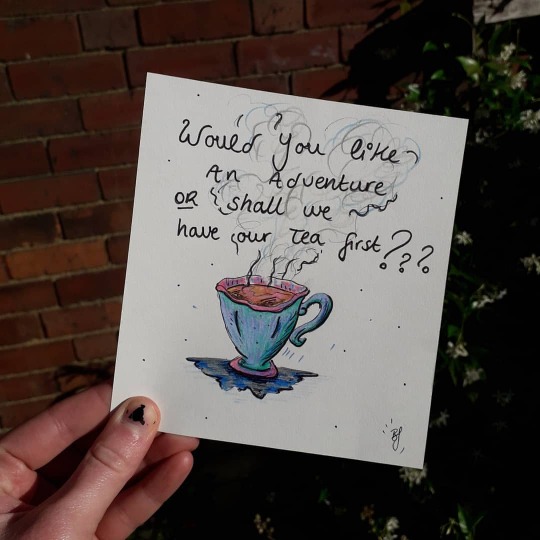 Would You like
An Adventure
OR shall we
have our Tea first???